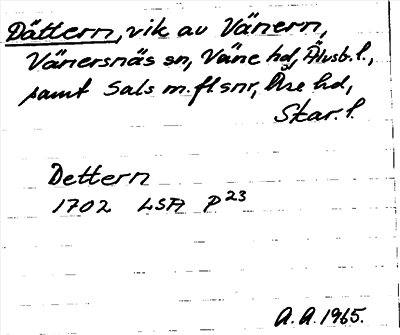 Dättern, vik av Vänern,
Vänersnäs sn, Väne hd, Älvsb. l.,
samt Sals m.fl snr, Åse hd,
Skar. l.
Dettern
1702 LSA P23
A.A. 1965.